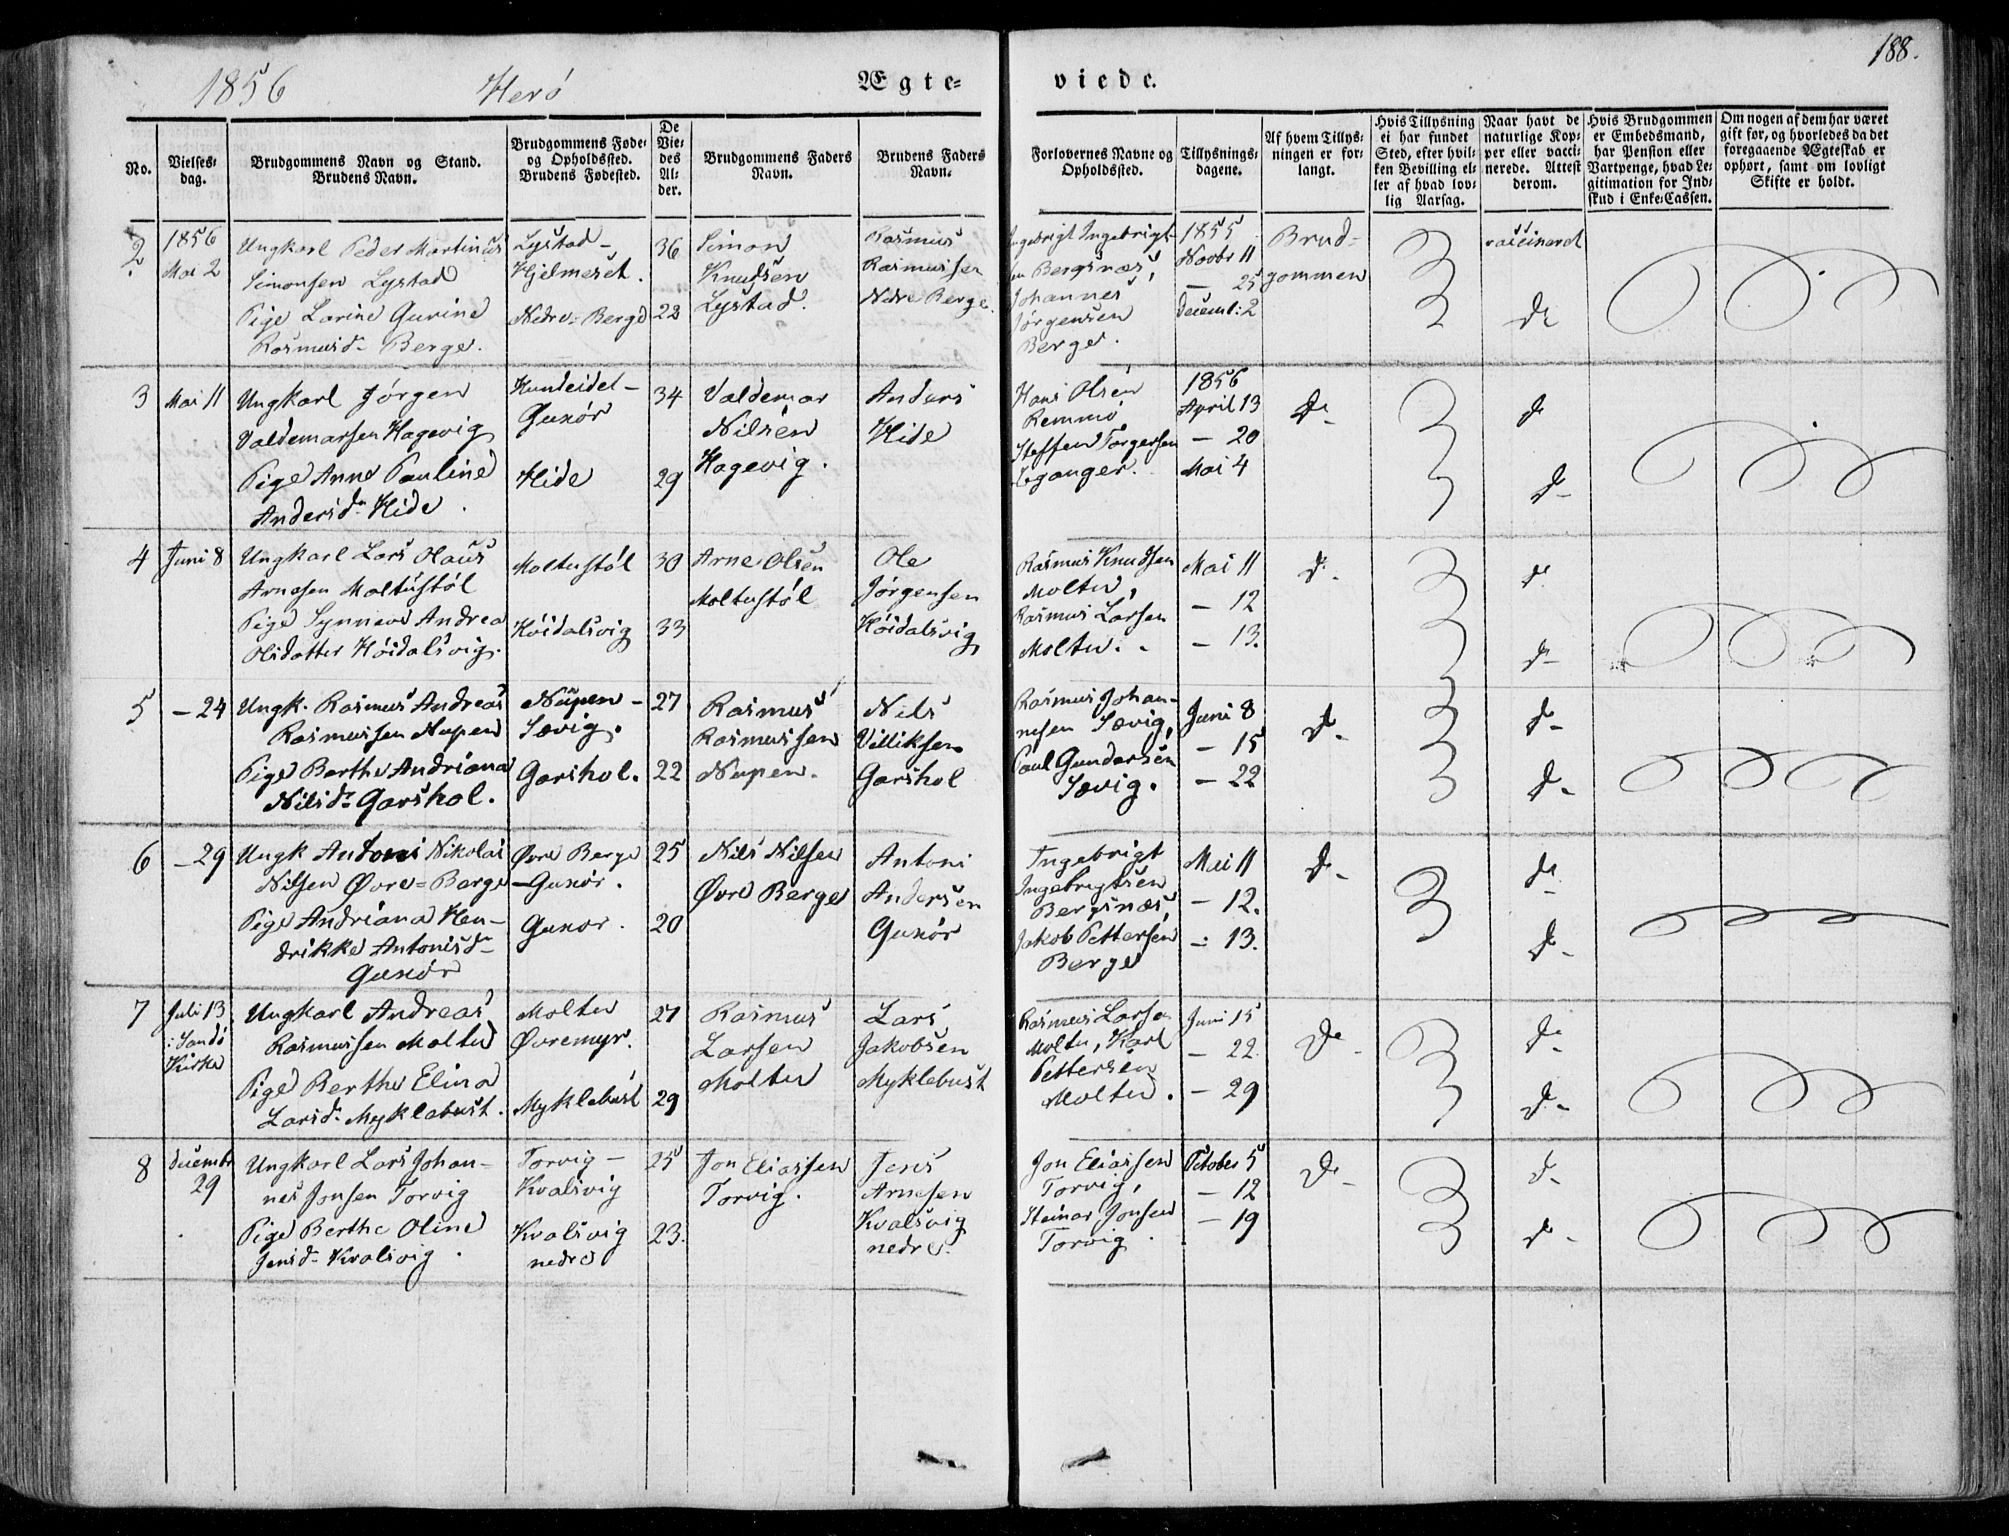 188.
1856 Herö Ægte= viede.
No.
Vielses-
dag.
Brudgommens Navn og Stand.
Brudens Navn.
Brudgommens Føde-
og Opholdssted.
Brudens Fødested.
De
Vie-
des
Al-
der.
Brudgommens Faders
Navn.
Brudens Faders
Navn.
Forlovernes Navne og
Opholdssted.
Tillysnings-
dagene.
Af hvem Tillys-
ningen er for-
langt.
Hvis Tillysning
ei har fundet
Sted, efter hvil-
ken Bevilling el-
ler af hvad lov-
lig Aarsag.
Naar havt de
naturlige Kop-
per eller vacci-
nerede. Attest
derom.
Hvis Brudgommen
er Embedsmand,
har Pension eller
Vartpenge, hvad Le-
gitimation for Ind-
skud i Enke-Cassen.
Om nogen af dem har været
gift før, og hvorledes da det
foregaaende Ægteskab er
ophørt, samt om lovligt
Skifte er holdt.
2
1856
Mai 2
Ungkarl Peder Martinus
Simonsen Lystad
Pige Larine Gurine
Rasmusd- Berge.
Lystad-
Hjelmeset.
Nedre-Berge
36
22
Simon
Knudsen
Lystad.
Rasmus
Rasmussen
Nedre Berge.
Ingebrigt Ingebrigt-
en Bergsnæs,
Johannes
Jørgensen
Berge.
1855
Novbr 11
- 25
Decemb: 2
Brud-
gommen
vaccinered
do
3
Mai 11
Ungkarl Jörgen
Valdemarsen Hagevig
Pige Anne Pauline
Andersd- Hide.
Kundeidet-
Gusör
Hide
34
29
Valdemar
Nilsen
Hagevig.
Anders
Hide
Hans Olsen
Remmö
Steffen Torgersen
Eganger.
1856
April 13
- 20
Mai 4
do
do
do-
4
Juni 8
Ungkarl Lars Olaus
Arnesen Moltustöl
Pige Synneve Andrea
Olsdatter Höidalsvig.
Moltustöl
Höidalsvig
30
33
Arne Olsen
Moltustöl
Ole
Jörgensen
Höidalsvig
Rasmus Knudsen
Moltu,
Rasmus Larsen
Moltu.
Mai 11
- 12
- 13.
do-
do
do-
5
- 24
Ungk. Rasmus Andreas
Rasmussen Nupen
Pige Berthe Andriana
Nilsd- Garshol.
Nupen-
Sævig.
Garshol.
27
22
Rasmus
Rasmussen
Nupen.
Nils
Villiksen
Garshol
Rasmus Johan-
nesen Sævig,
Paul Gundersen
Sævig.
Juni 8
- 15
- 22
do-
do-
do-
6
- 29
Ungk Antoni Nikolai
Nilsen Övre-Berge
Pige Andriana Hen-
drikke Antonisd-
Gusör
Övre Berge
-Gusör.
Gusör.
25
20
Nils Nilsen
Övre Berge
Antoni
Andersen
Gusör
Ingebrigt
Ingebrigtsen
Bergsnæs,
Jakob Pettersen
Berge
Mai 11
- 12.
- 13.
do-
do-
do-
7
Juli 13
i Sandö
Kirke
Ungkarl Andreas
Rasmussen Moltu
Pige Berthe Elina
Larsd- Myklebust.
Moltu
Övremyr.
Myklebust
27
29
Rasmus
Larsen
Moltu
Lars
Jakobsen
Myklebust
Rasmus Larse
Moltu, Karl
Pettersen
Moltu.
Juni 15
- 22.
- 29
do-
do-
do-
8
Decembr
29
Ungkarl Lars Johan-
nes Jonsen Torvig
Pige Berthe Oline
Jensd- Kvalsvig.
Torvig-
Kvalsvig
Kvalsvig
nedre
25
23.
Jon Eliassen
Torvig.
Jens
Arnesen
Kvalsvig
nedre.
Jon Eliassen
Torvig,
Steinar Jonsen
Torvig.
October 5
- 12
- 19
do-
do-
do-